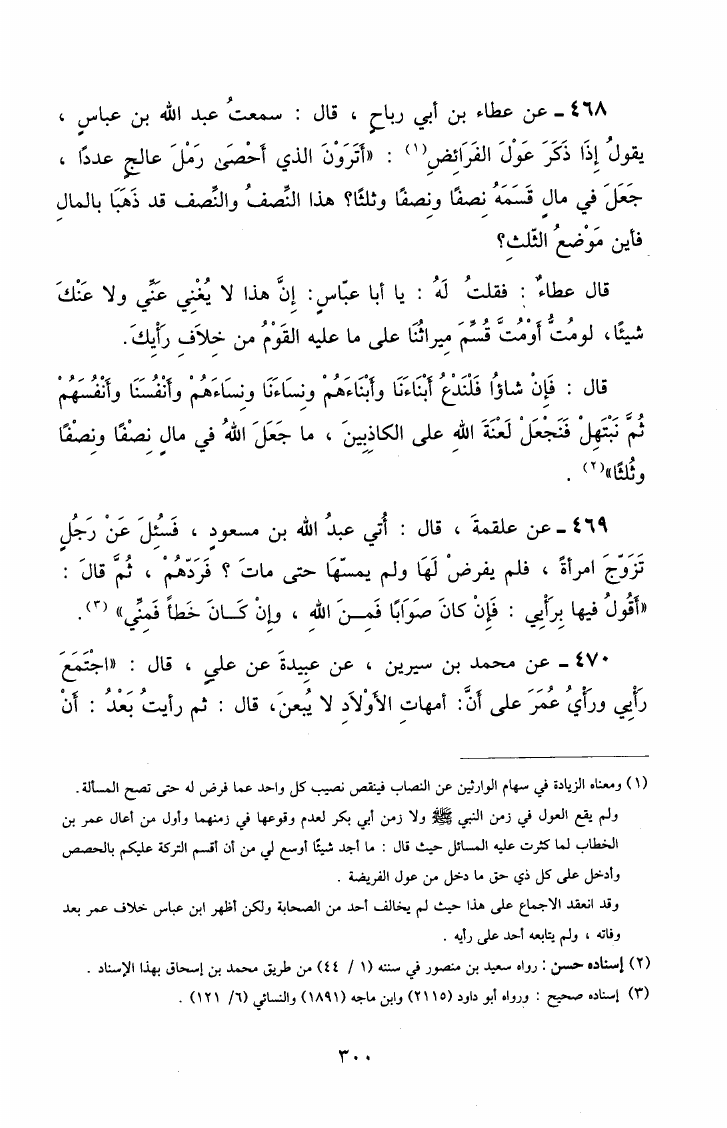 ٤٦٨ ـ عن عطاء بن أبي رباحٍ ، قال : سمعتُ عبد الله بن عباسٍ ،
يقولُ إِذَا ذَكَرَ عَوْلَ الفَرَائِضِ(١) : «أَتَرَوْنَ الذي أَحْصَىٰ رَمْلَ عالجٍ عددًا ،
جَعَلَ في مالٍ قَسَمَهُ نصفًا ونصفًا وثلثًا؟ هذا النِّصفُ والنِّصف قد ذَهَبَا بالمالِ
فأين مَوْضعُ الثّلثِ؟
قال عطاءٌ : فقلتُ لَهُ : يا أبا عبّاسٍ: إِنَّ هذا لا يُغْنِي عَنِّي ولا عَنْكَ
شيئًا، لومُتُّ أَوْمُتَّ قُسِّمَ مِيراثُنَا على ما عليه القَوْمُ من خِلاَفِ رَأْيِكَ.
قال : فَإِنْ شاؤُا فَلْنَدْعُ أَبْنَاءَنَا وأَبْنَاءَهُمْ ونِسَاءَنَا ونِسَاءَهُمْ وأَنْفُسَنَا وأَنْفُسَهُمْ
ثُمَّ نَبْتَهِلْ فَنَجْعَلْ لَعْنَةَ اللهِ على الكاذِبِينَ ، ما جعَلَ اللهُ في مالٍ نِصْفًا ونصْفًا
وثُلثًا»(٢) .
٤٦٩ ـ عن علقمةَ ، قال : أُتي عبدُ الله بن مسعودٍ ، فَسُئِلَ عَنْ رَجُلٍ
تَزَوَّجَ امرأةً ، فلم يفرضْ لَهَا ولم يمسّهَا حتى ماتَ ؟ فَرَدّهُمْ ، ثُمَّ قالَ :
«أَقُولُ فيها بِرَأْيي : فَإِنْ كانَ صَوَابًا فَمِـنَ اللهِ ، وإِنْ كَـانَ خَطأً فَمِنِّي» (٣).
٤٧٠ ـ عن محمد بن سيرين ، عن عبيدةَ عن علي ، قال : «اجْتَمَعَ
رَأْيي ورَأْيُ عُمَرَ على أَنَّ: أمهاتِ الأَوْلاَدِ لا يُبعنَ، قال : ثم رأيتُ بَعْدُ : أَنْ
(١) ومعناه الزيادة في سهام الوارثين عن النصاب فينقص نصيب كل واحد عما فرض له حتى تصح المسألة.
ولم يقع العول في زمن النبي ﷺ ولا زمن أبي بكر لعدم وقوعها في زمنهما وأول من أعال عمر بن
الخطاب لما كثرت عليه المسائل حيث قال : ما أجد شيئًا أوسع لي من أن أقسم التركة عليكم بالحصص
وأدخل على كل ذي حق ما دخل من عول الفريضة .
وقد انعقد الاجماع على هذا حيث لم يخالف أحد من الصحابة ولكن أظهر ابن عباس خلاف عمر بعد
وفاته ، ولم يتابعه أحد على رأيه .
(٢) إسناده حسن : رواه سعيد بن منصور في سننه (١ / ٤٤) من طريق محمد بن إسحاق بهذا الإسناد .
(٣) إسناده صحيح : ورواه أبو داود (٢١١٥) وابن ماجه (١٨٩١) والنسائي (٦/ ١٢١) .
٣٠٠